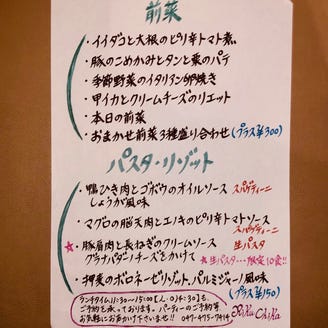 前菜
・イイダコと大根のピリ辛トマト煮
・豚のこめかみとタンと栗のパテ
・季節野菜のイタリアン卵焼き
・甲イカとクリームチーズのリエット
・本日の前菜
・おまかせ前菜3種盛り合わせ (プラス¥300)
パスタ・リゾット
・鴨ひき肉とゴボウのオイルソース スパゲティーニ
しょうが風味
・マグロの脳天肉とエノキのピリ辛トマトソース
スパゲティーニ
★・豚肩肉と長ねぎのクリームソース 生パスタ
グラナパダーノチーズをかけて ★生パスタ…限定10食!!
・押麦のボロネーゼリゾット、パルミジャーノ風味
(プラス¥150)
ランチタイム11:30~15:00(L.O14:30)も、
ご予約を承っております。パーティーのご予約等
お気軽にお声かけくださいませ!!